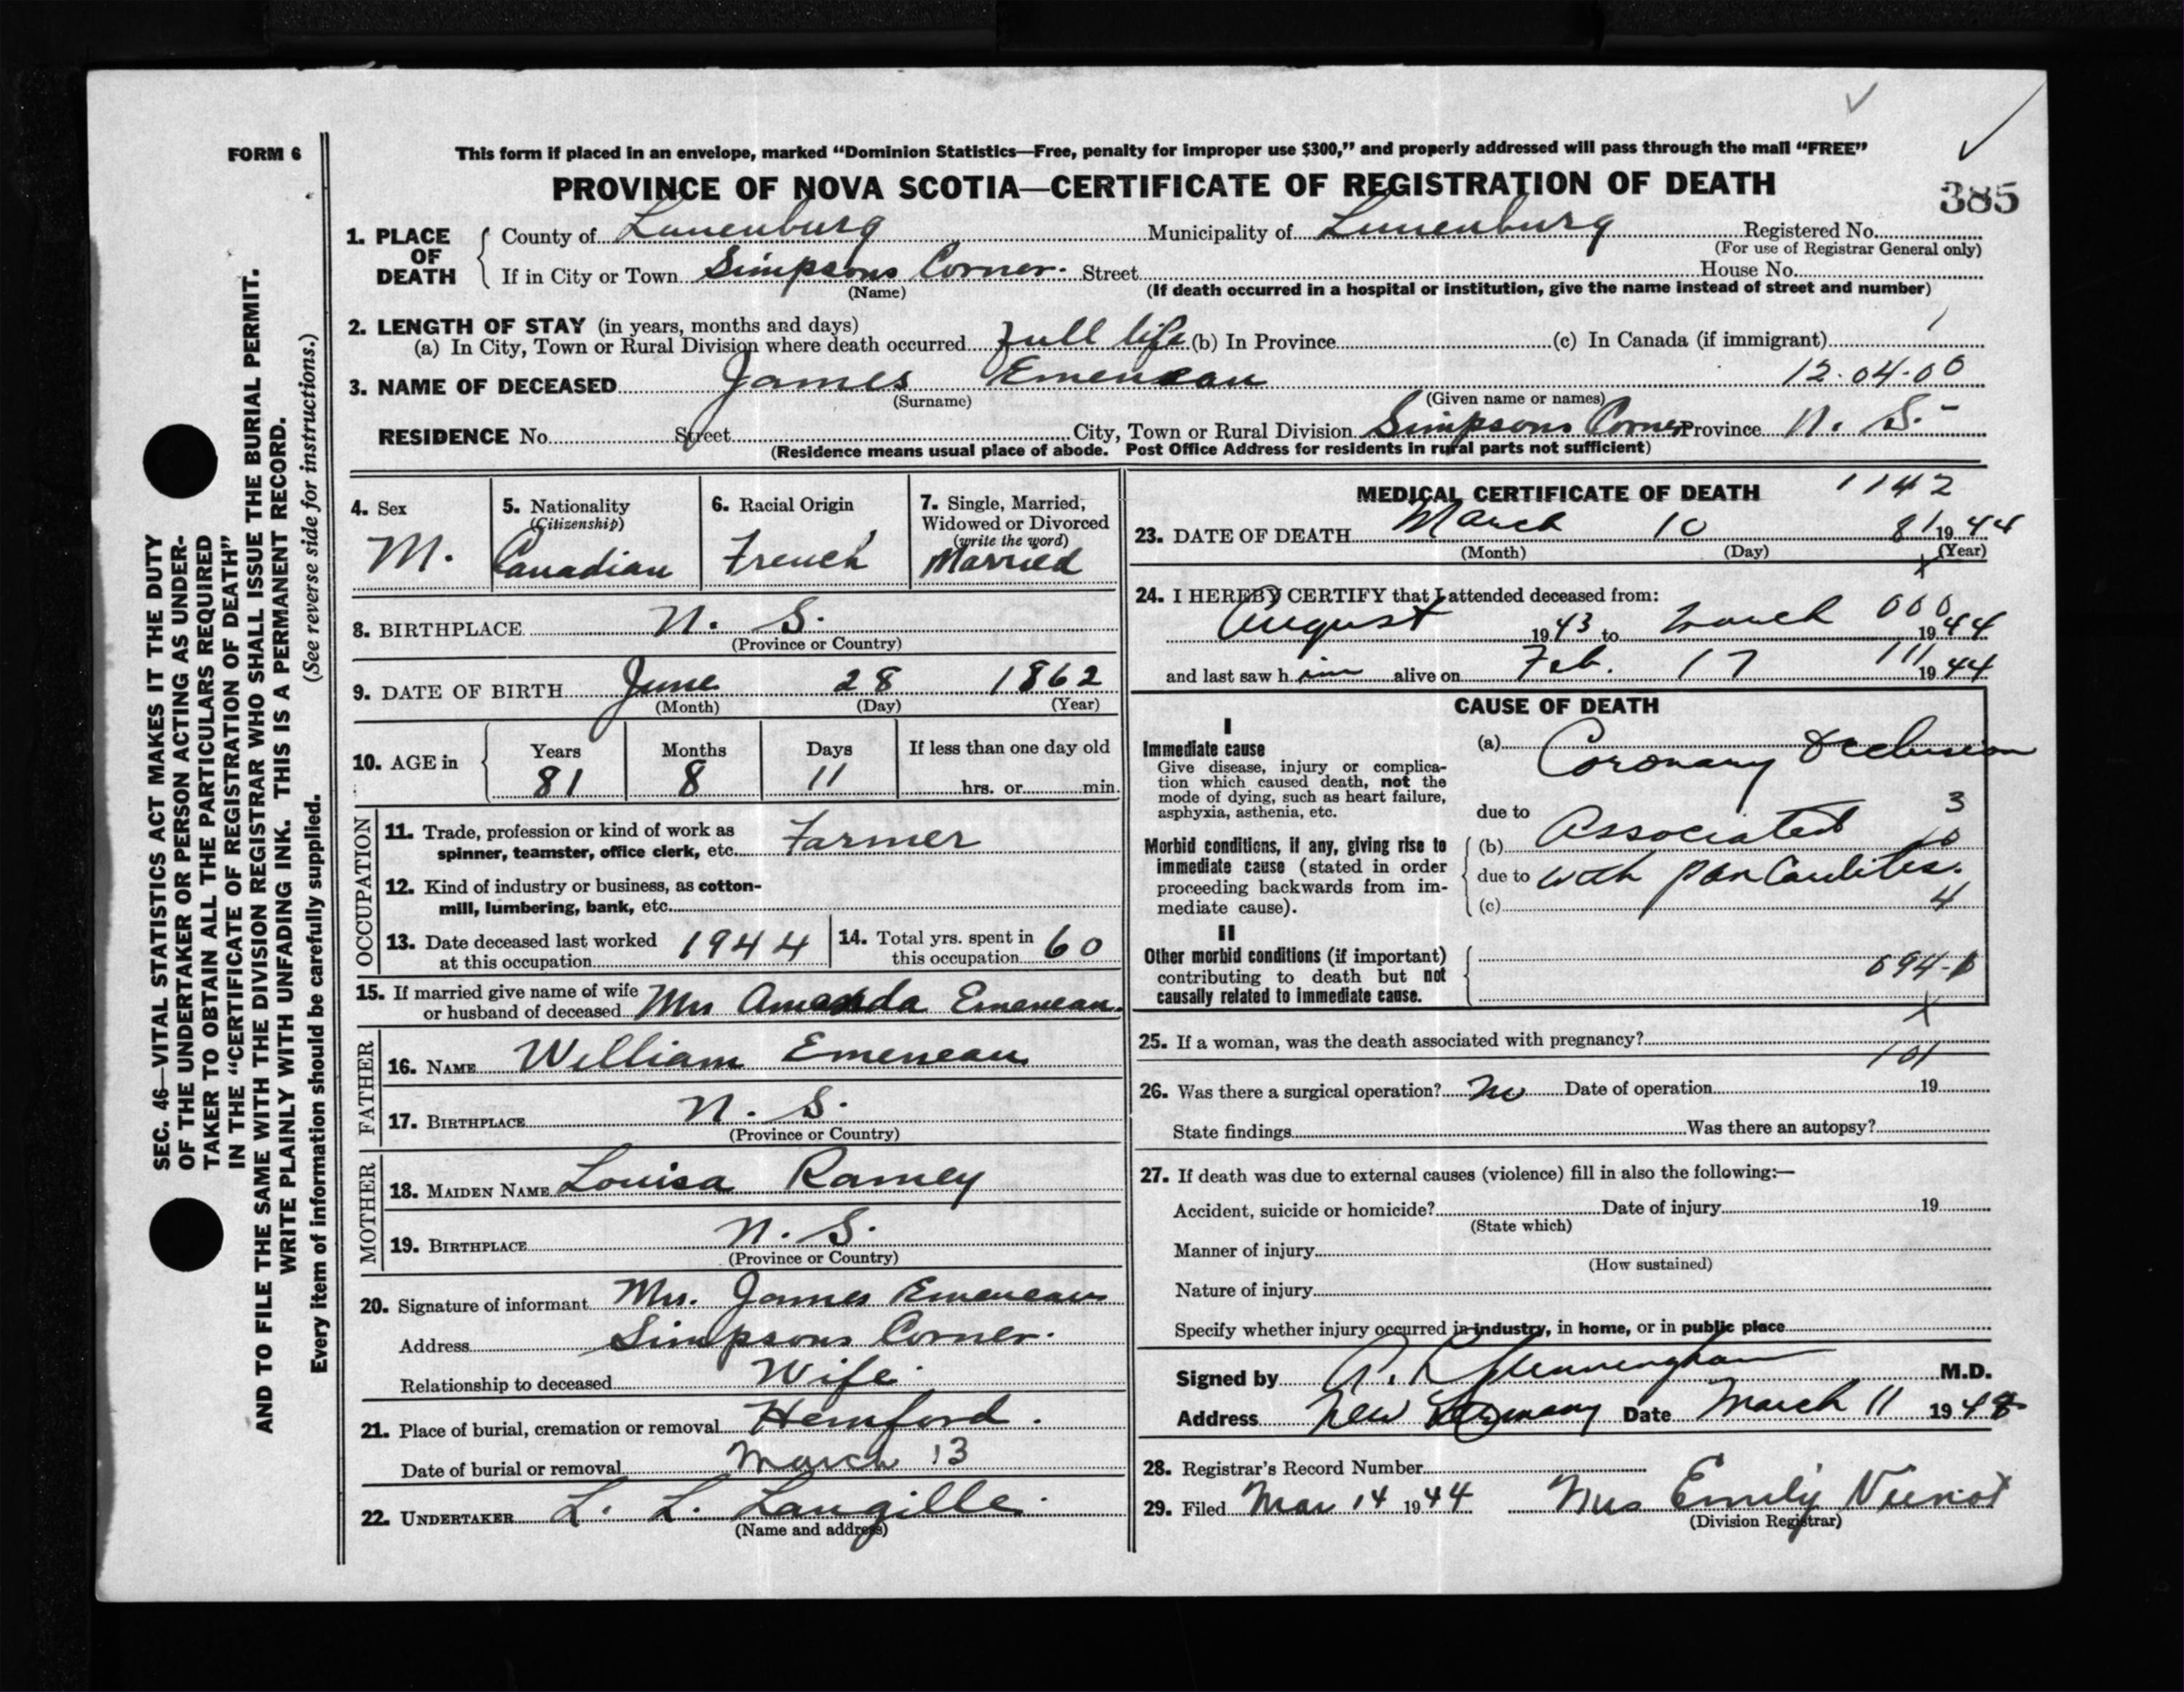 FORM 6
This form if placed in an envelope, marked "Dominion Statistics—Free, penalty for improper use $300," and properly addressed will pass through the mail "FREE"
PROVINCE OF NOVA SCOTIA—CERTIFICATE OF REGISTRATION OF DEATH
385
1. PLACE OF DEATH { County of Lunenburg Municipality of Lunenburg Registered No.
(For use of Registrar General only)
If in City or Town Simpsons Corner. Street House No.
(Name) (If death occurred in a hospital or institution, give the name instead of street and number)
2. LENGTH OF STAY (in years, months and days)
(a) In City, Town or Rural Division where death occurred full life (b) In Province (c) In Canada (if immigrant)
3. NAME OF DECEASED James Emeneau 12-04-00
(Surname) (Given name or names)
RESIDENCE No. Street City, Town or Rural Division Simpsons Corner Province N. S.
(Residence means usual place of abode. Post Office Address for residents in rural parts not sufficient)
SEC. 46—VITAL STATISTICS ACT MAKES IT THE DUTY
OF THE UNDERTAKER OR PERSON ACTING AS UNDER-
TAKER TO OBTAIN ALL THE PARTICULARS REQUIRED
IN THE "CERTIFICATE OF REGISTRATION OF DEATH"
AND TO FILE THE SAME WITH THE DIVISION REGISTRAR WHO SHALL ISSUE THE BURIAL PERMIT.
WRITE PLAINLY WITH UNFADING INK. THIS IS A PERMANENT RECORD.
Every item of information should be carefully supplied. (See reverse side for instructions.)
4. Sex
M.
5. Nationality
(Citizenship)
Canadian
6. Racial Origin
French
7. Single, Married,
Widowed or Divorced
(write the word)
Married
8. BIRTHPLACE N. S.
(Province or Country)
9. DATE OF BIRTH June 28 1862
(Month) (Day) (Year)
10. AGE in { Years Months Days If less than one day old
81 8 11 hrs. or min.
OCCUPATION
11. Trade, profession or kind of work as
spinner, teamster, office clerk, etc. Farmer
12. Kind of industry or business, as cotton-
mill, lumbering, bank, etc.
13. Date deceased last worked
at this occupation 1944
14. Total yrs. spent in
this occupation 60
15. If married give name of wife
or husband of deceased Mrs Amanda Emeneau.
FATHER
16. NAME William Emeneau
17. BIRTHPLACE N. S.
(Province or Country)
MOTHER
18. MAIDEN NAME Louisa Ramey
19. BIRTHPLACE N. S.
(Province or Country)
20. Signature of informant Mrs. James Emeneau
Address Simpsons Corner.
Relationship to deceased Wife.
21. Place of burial, cremation or removal Hemford.
Date of burial or removal March 13
22. UNDERTAKER L. L. Langille.
(Name and address)
MEDICAL CERTIFICATE OF DEATH 1142
23. DATE OF DEATH March 10 81 1944
(Month) (Day) (Year)
x
24. I HEREBY CERTIFY that I attended deceased from:
August 1943 to March 000 1944
and last saw h im alive on Feb. 17 111 1944
CAUSE OF DEATH
I
Immediate cause
Give disease, injury or complica-
tion which caused death, not the
mode of dying, such as heart failure,
asphyxia, asthenia, etc.
(a) Coronary Occlusion
due to 3
Morbid conditions, if any, giving rise to
immediate cause (stated in order
proceeding backwards from im-
mediate cause).
(b) Associated 10
due to with pancarditis.
(c) 4
II
Other morbid conditions (if important)
contributing to death but not
causally related to immediate cause.
x
25. If a woman, was the death associated with pregnancy?
101
26. Was there a surgical operation? No Date of operation 19
State findings Was there an autopsy?
27. If death was due to external causes (violence) fill in also the following:—
Accident, suicide or homicide? Date of injury 19
(State which)
Manner of injury
(How sustained)
Nature of injury
Specify whether injury occurred in industry, in home, or in public place
Signed by Cunningham M.D.
Address New Germany Date March 11 19
28. Registrar's Record Number
29. Filed Mar 14 1944 Mrs Emily Veinot
(Division Registrar)